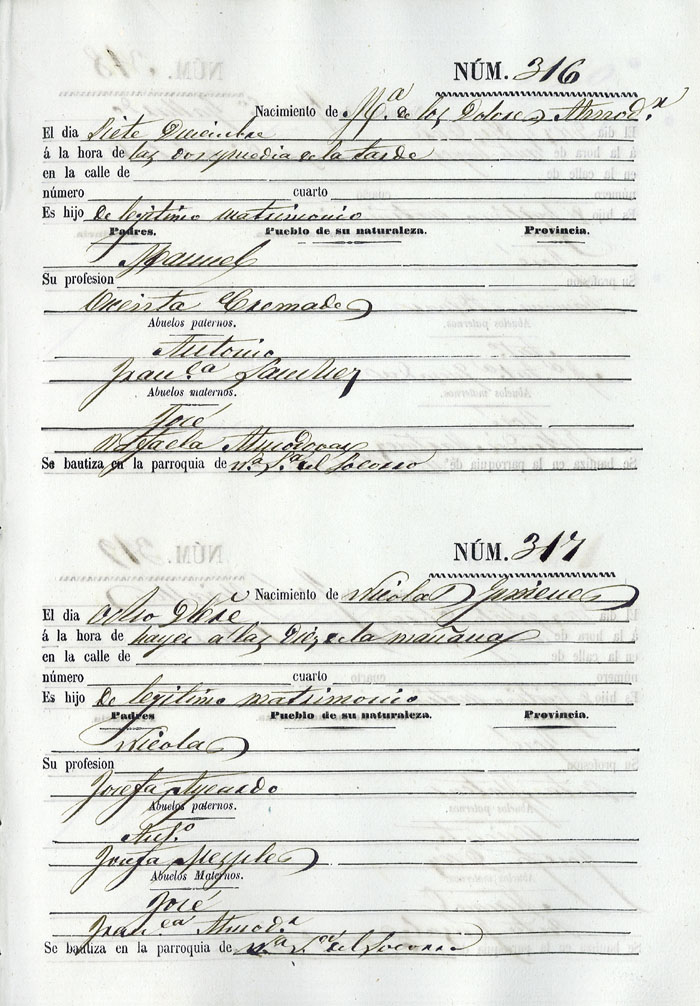 NÚM. 316
Nacimiento de Mª de los Dolores Almodr
El dia Siete Diciembre
á la hora de las dos y media de la tarde
en la calle de
número cuarto
Es hijo de legitimo matrimonio
Padres. Pueblo de su naturaleza. Provincia.
Manuel
Su profesion
Vicenta Cremades
Abuelos paternos.
Antonio
Franca Sanchez
Abuelos maternos.
José
Rafaela Almodovar
Se bautiza en la parroquia de Nª Sª del Socorro
NÚM. 317
Nacimiento de Nicolas Jimenes
El dia ocho Dbre
á la hora de hayer a las Diez de la mañana
en la calle de
número cuarto
Es hijo de legitimo matrimonio
Padres Pueblo de su naturaleza. Provincia.
Nicolas
Su profesion
Josefa
Abuelos paternos.
Anto
Josefa
Abuelos Maternos.
José
Franca Almodr
Se bautiza en la parroquia de Nª Sª del Socorro